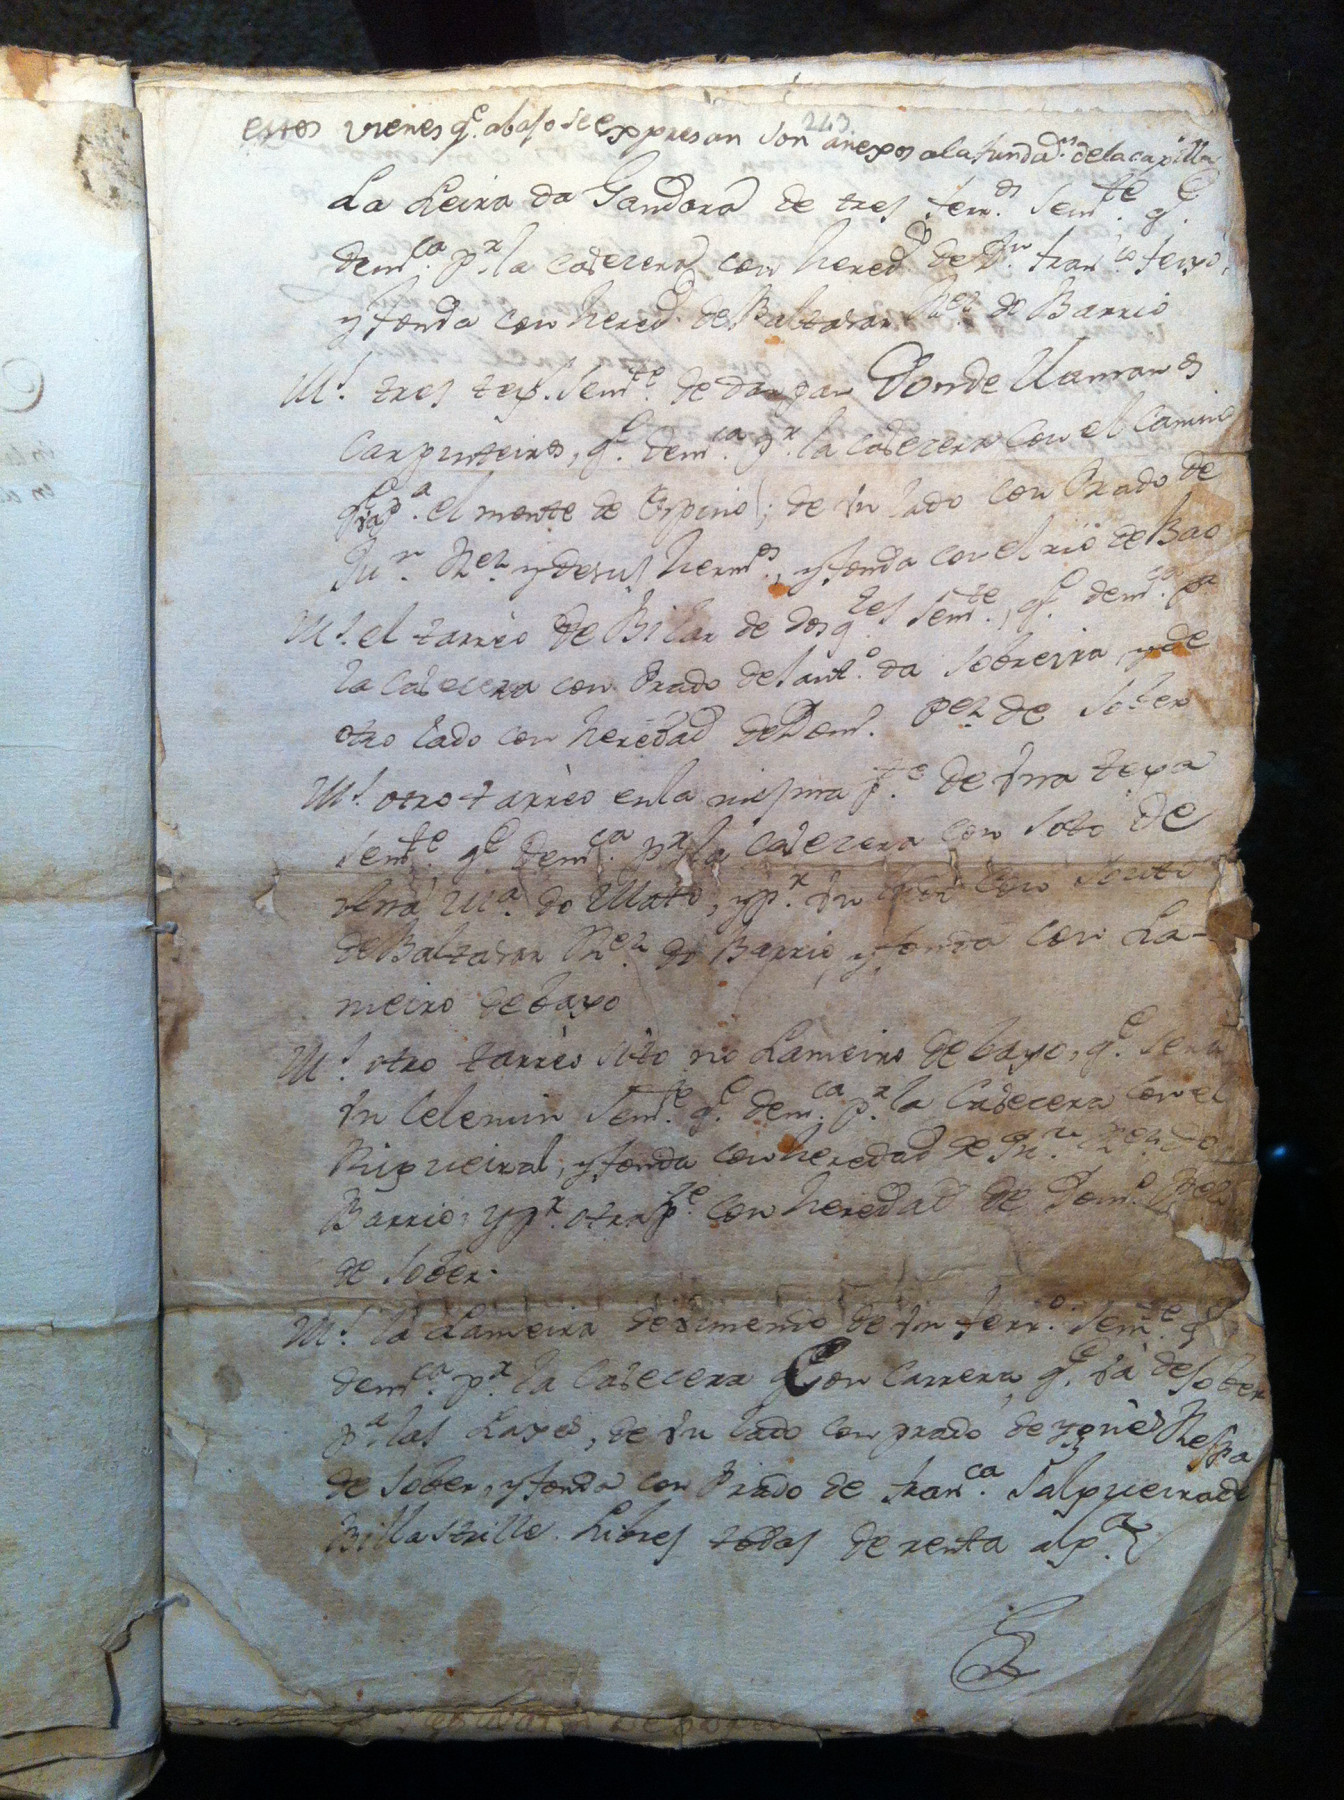 243
estos vienes q.e abajo se expresan son anexos a la fundaz.on de la capilla
La Leira da Gandora de tres ferr.os sem.te q.e
dem.ca p.r la cabecera con hered.d de D.n Fran.co feijo,
y fonda con hered.d de Baltasar Rz. do Barrio
M.s tres teg.s sem.te de dargan Donde llaman os
Carpinteiros, q.e dem.ca p.r la cabecera con el Camino
q.e va p.a el monte de Espino; de vn lado con Prado de
Ju.n Rz. y de sus herm.os, y fonda con el rio de Bao
M.s el tarreo de Bilar de dos q.tes sem.te, q.e dem.ca p.r
la cabecera con Prado de Sant.o da Sobreira, y de
otro lado con heredad de Dom.o Pez de Sober
M.s otro tarreo en la misma p.te de vna tega
sem.te q.e dem.ca p.r la cabecera con Soto de
M.a do Mato, y p.r vn lado con Souto
de Baltasar Rz. do Barrio, y fonda con La-
meiro de bayo
M.s otro tarreo sito no Lameiro de bayo, q.e sera
vn Celemin sem.te q.e dem.ca p.r la Cabecera con el
Rigueiral, y fonda con heredad de Ju.n Rz. do
Barrio, y p.r otra p.te con heredad de Dom.o Pez
de Sober.
M.s la Lameira de vimenio de vn ferr.o sem.te q.e
dem.ca p.r la Cabecera Con Carrera, q.e va de Sober
p.a las Laxes, de vn lado con prado de ygnes
de Sober, y fonda con Prado de Fran.ca Salgueira de
Billastrille. Libres todas de renta